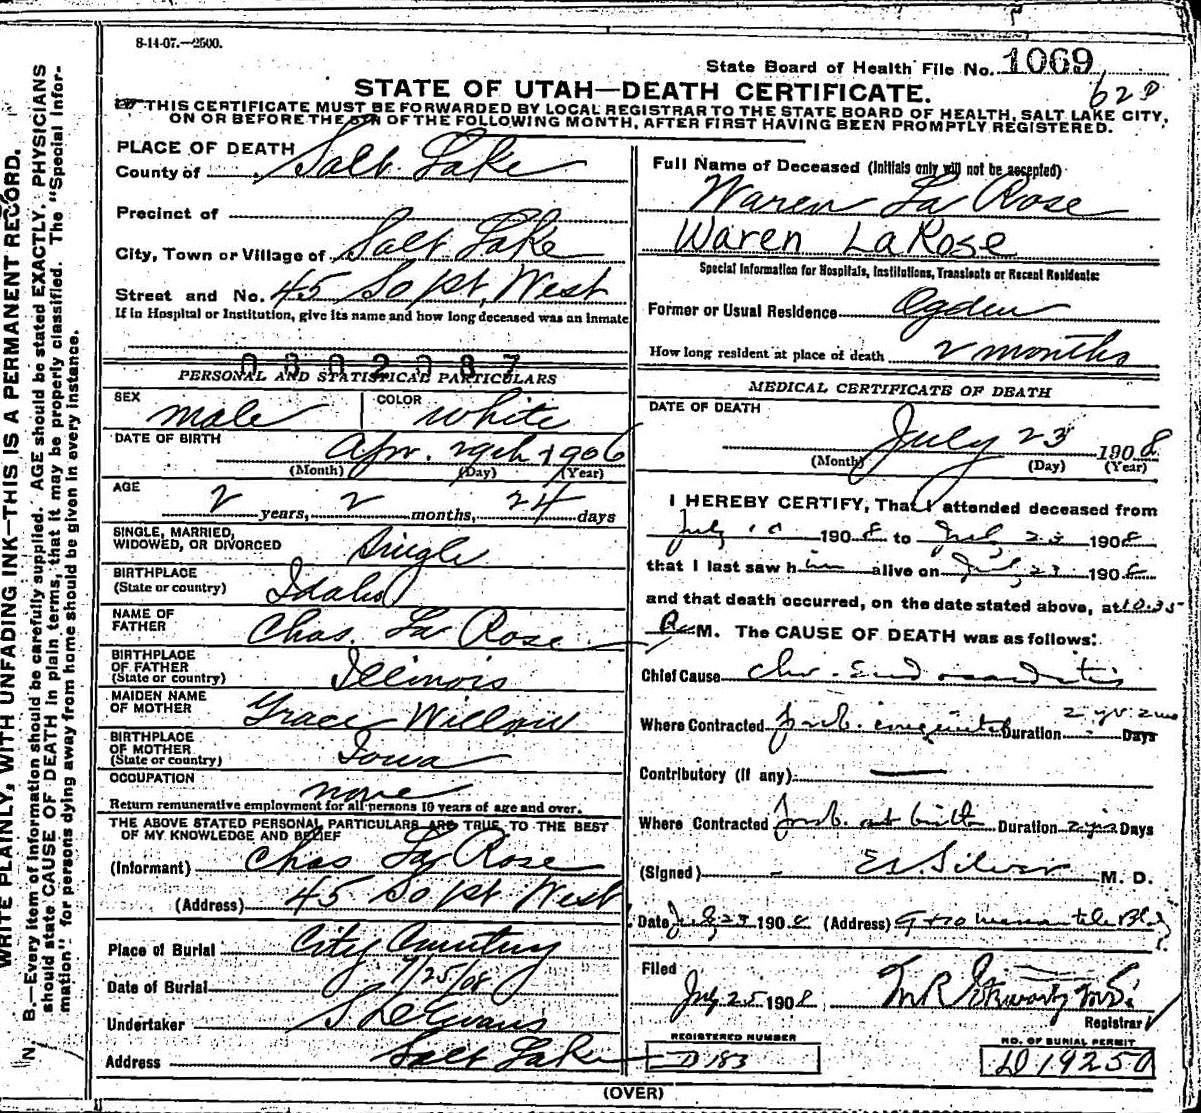 8-14-07.—2500.
State Board of Health File No. 1069
62D
STATE OF UTAH—DEATH CERTIFICATE.
THIS CERTIFICATE MUST BE FORWARDED BY LOCAL REGISTRAR TO THE STATE BOARD OF HEALTH, SALT LAKE CITY,
ON OR BEFORE THE 5TH OF THE FOLLOWING MONTH, AFTER FIRST HAVING BEEN PROMPTLY REGISTERED.
WRITE PLAINLY, WITH UNFADING INK—THIS IS A PERMANENT RECORD.
N. B.—Every item of information should be carefully supplied. AGE should be stated EXACTLY. PHYSICIANS
should state CAUSE OF DEATH in plain terms, that it may be properly classified. The "Special Infor-
mation" for persons dying away from home should be given in every instance.
PLACE OF DEATH
County of Salt Lake
Precinct of
City, Town or Village of Salt Lake
Street and No. 45 So 1st West
If in Hospital or Institution, give its name and how long deceased was an inmate
0302087
PERSONAL AND STATISTICAL PARTICULARS
SEX male COLOR white
DATE OF BIRTH Apr. 29th 1906
(Month) (Day) (Year)
AGE 2 years, 2 months, 24 days
SINGLE, MARRIED,
WIDOWED, OR DIVORCED Single
BIRTHPLACE
(State or country) Idaho
NAME OF
FATHER Chas. La Rose
BIRTHPLACE
OF FATHER
(State or country) Illinois
MAIDEN NAME
OF MOTHER Grace
BIRTHPLACE
OF MOTHER
(State or country) Iowa
OCCUPATION none
Return remunerative employment for all persons 10 years of age and over.
THE ABOVE STATED PERSONAL PARTICULARS ARE TRUE TO THE BEST
OF MY KNOWLEDGE AND BELIEF
(Informant) Chas La Rose
(Address) 45 So 1st West
Place of Burial City Cemetery
Date of Burial 7/25/08
Undertaker S D Evans
Address Salt Lake
Full Name of Deceased (Initials only will not be accepted)
Waren La Rose
Waren LaRose
Special Information for Hospitals, Institutions, Transients or Recent Residents:
Former or Usual Residence Ogden
How long resident at place of death 2 months
MEDICAL CERTIFICATE OF DEATH
DATE OF DEATH
July 23 1908
(Month) (Day) (Year)
I HEREBY CERTIFY, That I attended deceased from
July 1908 to July 23 1908
that I last saw him alive on July 23 1908
and that death occurred, on the date stated above, at 10.35
M. The CAUSE OF DEATH was as follows:
Chief Cause Chr. Endocarditis
Where Contracted Prob. congenital Duration 2 yrs 2 mo Days
Contributory (if any) —
Where Contracted Prob. at birth Duration 2 yrs Days
(Signed) Silver M. D.
Date July 23 1908 (Address) mercantile Bldg
Filed
July 25 1908 M R Stewart M.D.
Registrar
REGISTERED NUMBER
D 183
NO. OF BURIAL PERMIT
D 19250
(OVER)